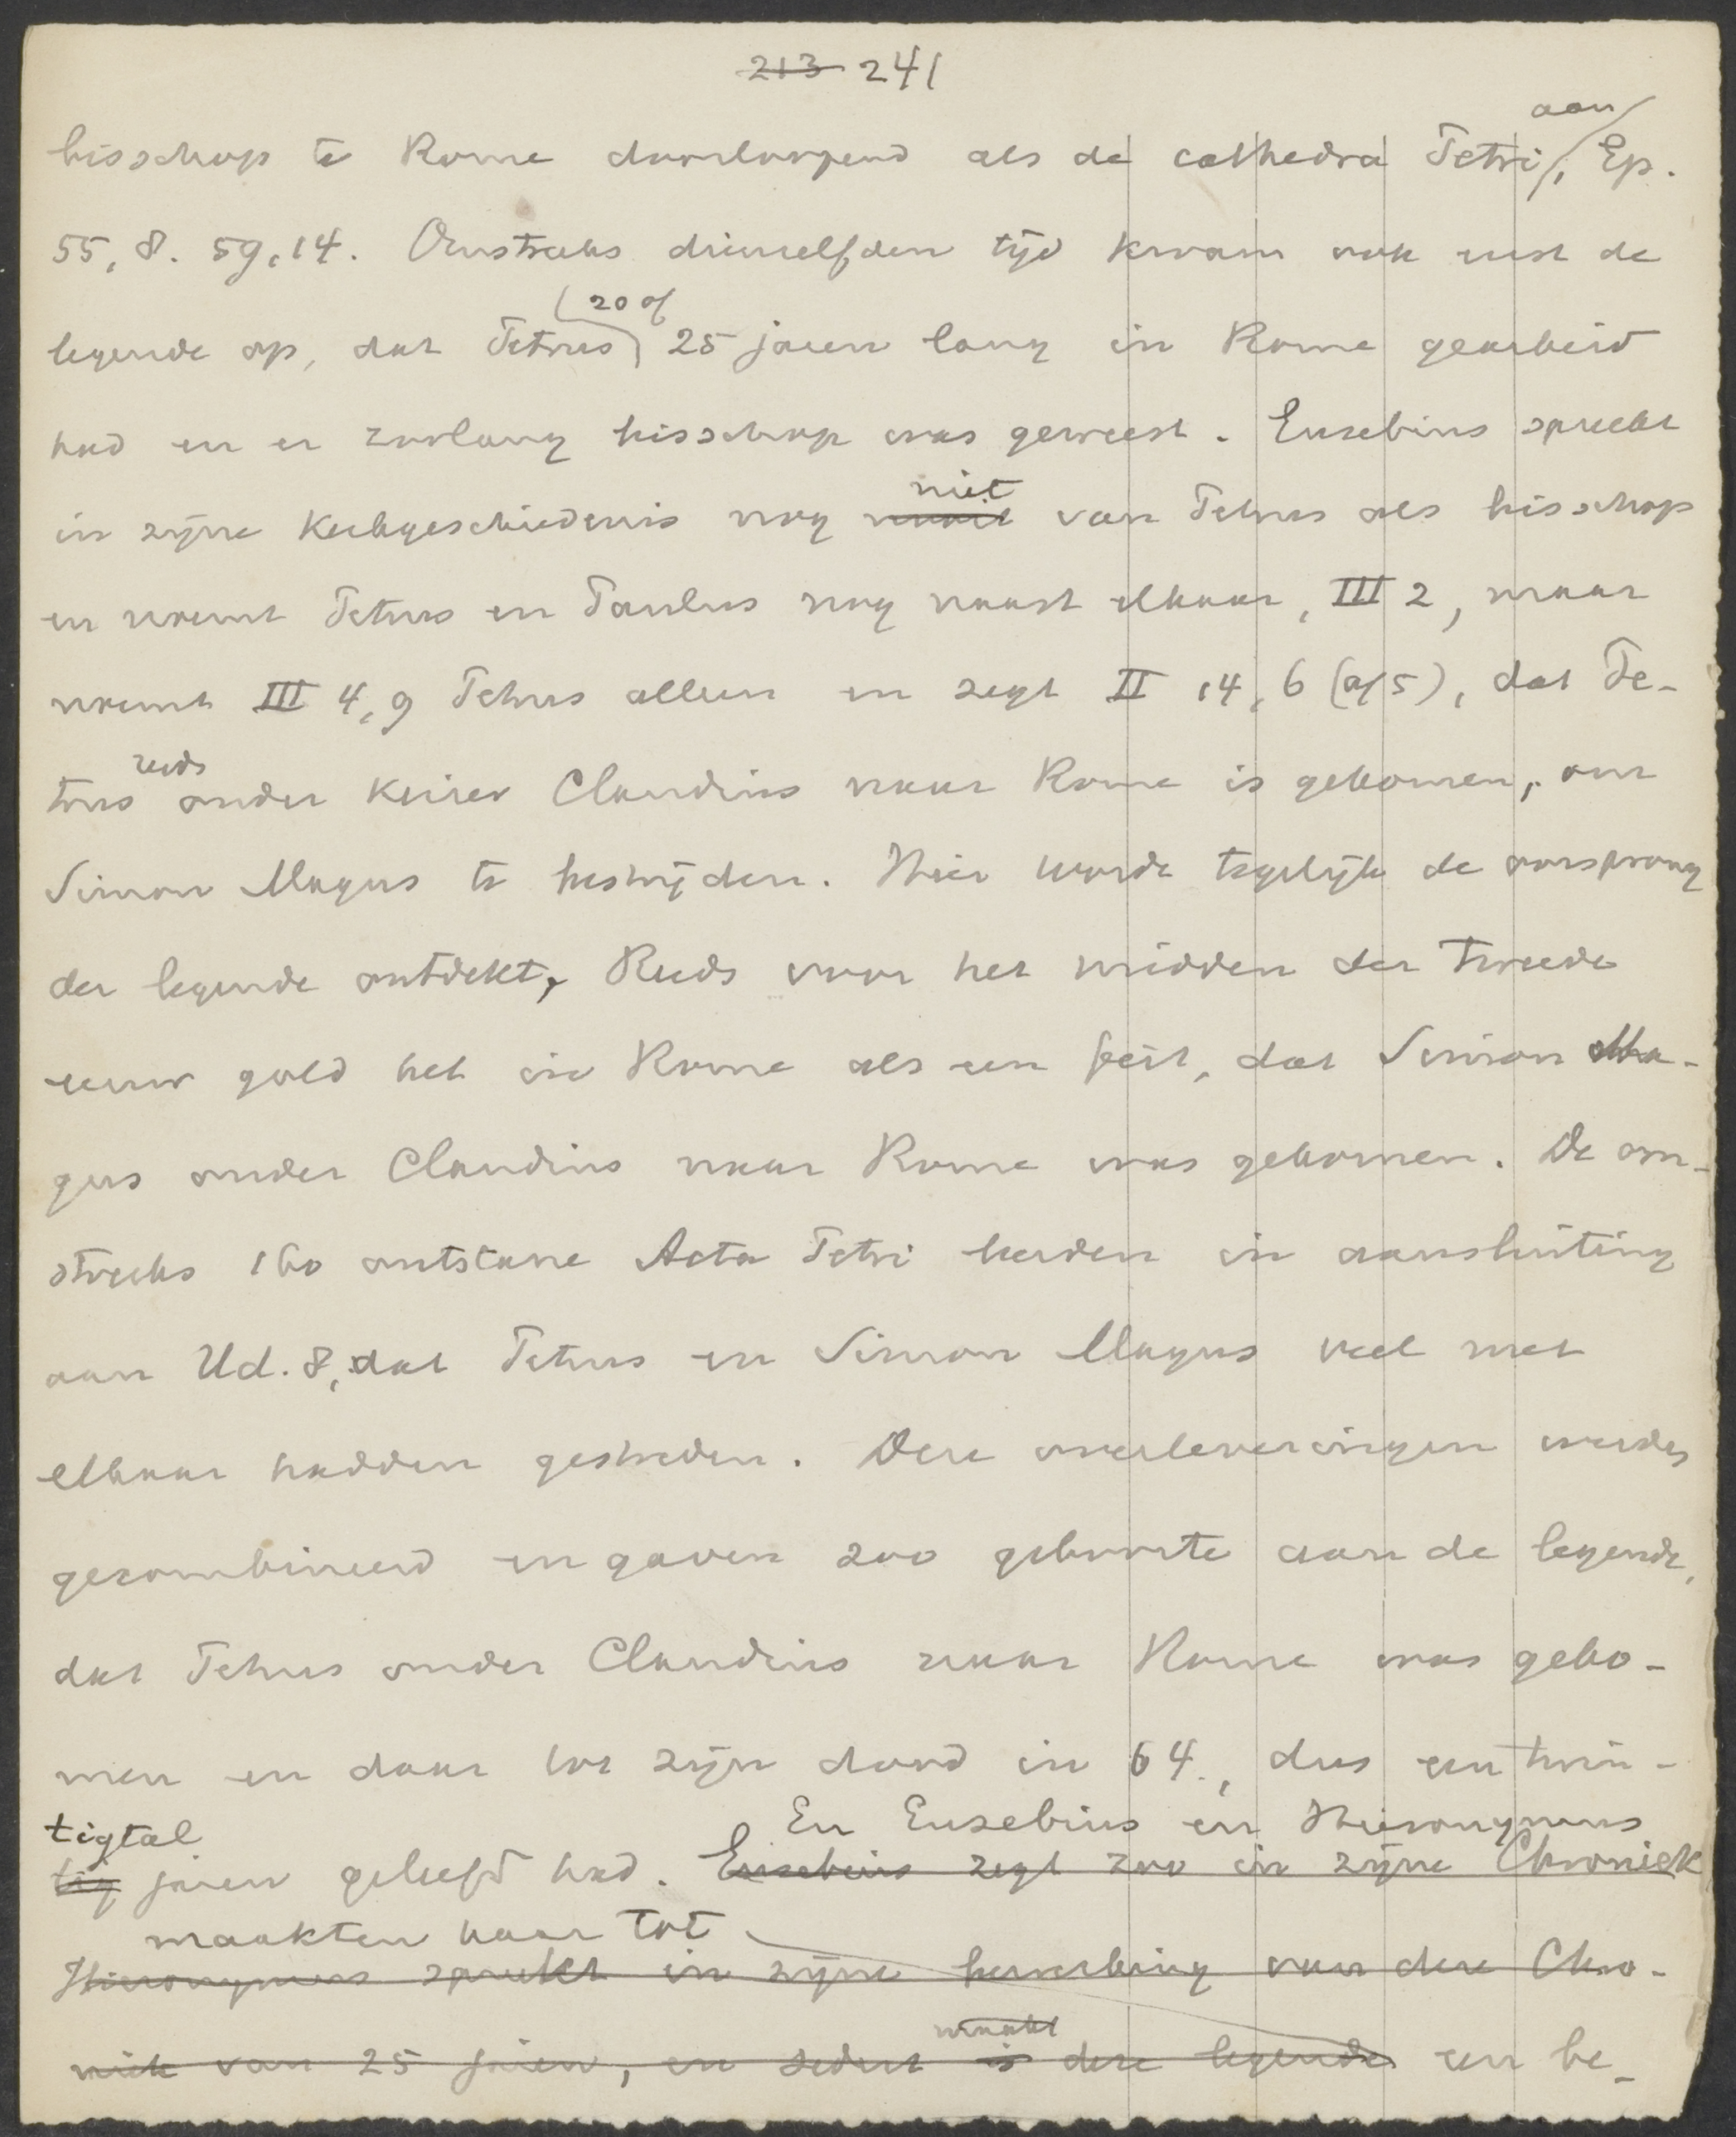 213 241
aan
bisschop te Rome doorloopend als de cathedra Petri, Ep.
55, 8. 59, 14. Omstreeks dienzelfden tijd kwam ook eerst de
(20 of
legende op, dat Petrus) 25 jaren lang in Rome gearbeid
had en er zoolang bisschop was geweest. Eusebius spreekt
niet
in zijne Kerkgeschiedenis nog nooit van Petrus als bisschop
en noemt Petrus en Paulus nog naast elkaar, III 2, maar
noemt III 4, 9 Petrus alleen en zegt II 14, 6 (of 5), dat Pe-
reeds
trus onder keizer Claudius naar Rome is gekomen, om
Simon Magus te bestrijden. Hier wordt tegelijk de oorsprong
der legende ontdekt, Reeds voor het midden der tweede
eeuw gold het in Rome als een feit, dat Simon Ma-
gus onder Claudius naar Rome was gekomen. De om-
streeks 160 ontstane Acta Petri leerden in aansluiting
aan Hd. 8, dat Petrus en Simon Magus veel met
elkaar hadden gestreden. Deze overleveringen werden
gecombineerd en gaven zoo geboorte aan de legende,
dat Petrus onder Claudius naar Rome was geko-
men en daar tot zijn dood in 64, dus een twin-
tigtal En Eusebius en Hieronymus
tig jaren geleefd had. Eusebius zegt zoo in zijne Chroniek
maakten haar tot
Hieronymus spreekt in zijne bewerking van deze Chro-
maakt
niek van 25 jaren, en sedert is deze legende een be-